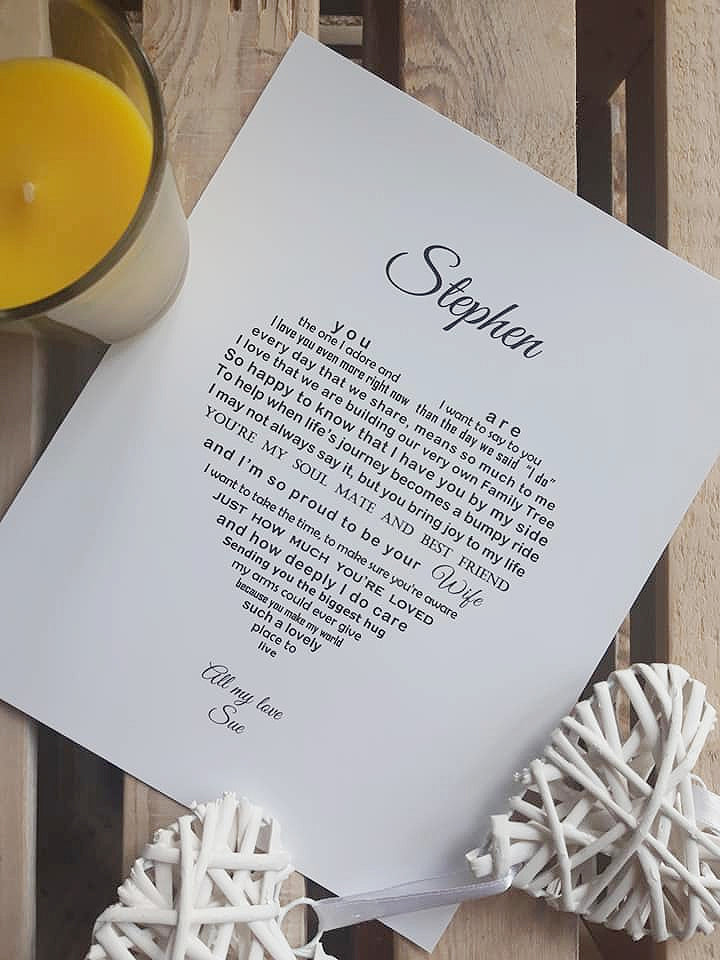 Stephen
you are
the one I adore and I want to say to you
I love you even more right now than the day we said "I do"
every day that we share, means so much to me
I love that we are building our very own Family Tree
So happy to know that I have you by my side
To help when life's journey becomes a bumpy ride
I may not always say it, but you bring joy to my life
YOU'RE MY SOUL MATE AND BEST FRIEND
and I'm so proud to be your Wife
I want to take the time, to make sure you're aware
JUST HOW MUCH YOU'RE LOVED
and how deeply I do care
Sending you the biggest hug
my arms could ever give
because you make my world
such a lovely
place to
live
All my love
Sue